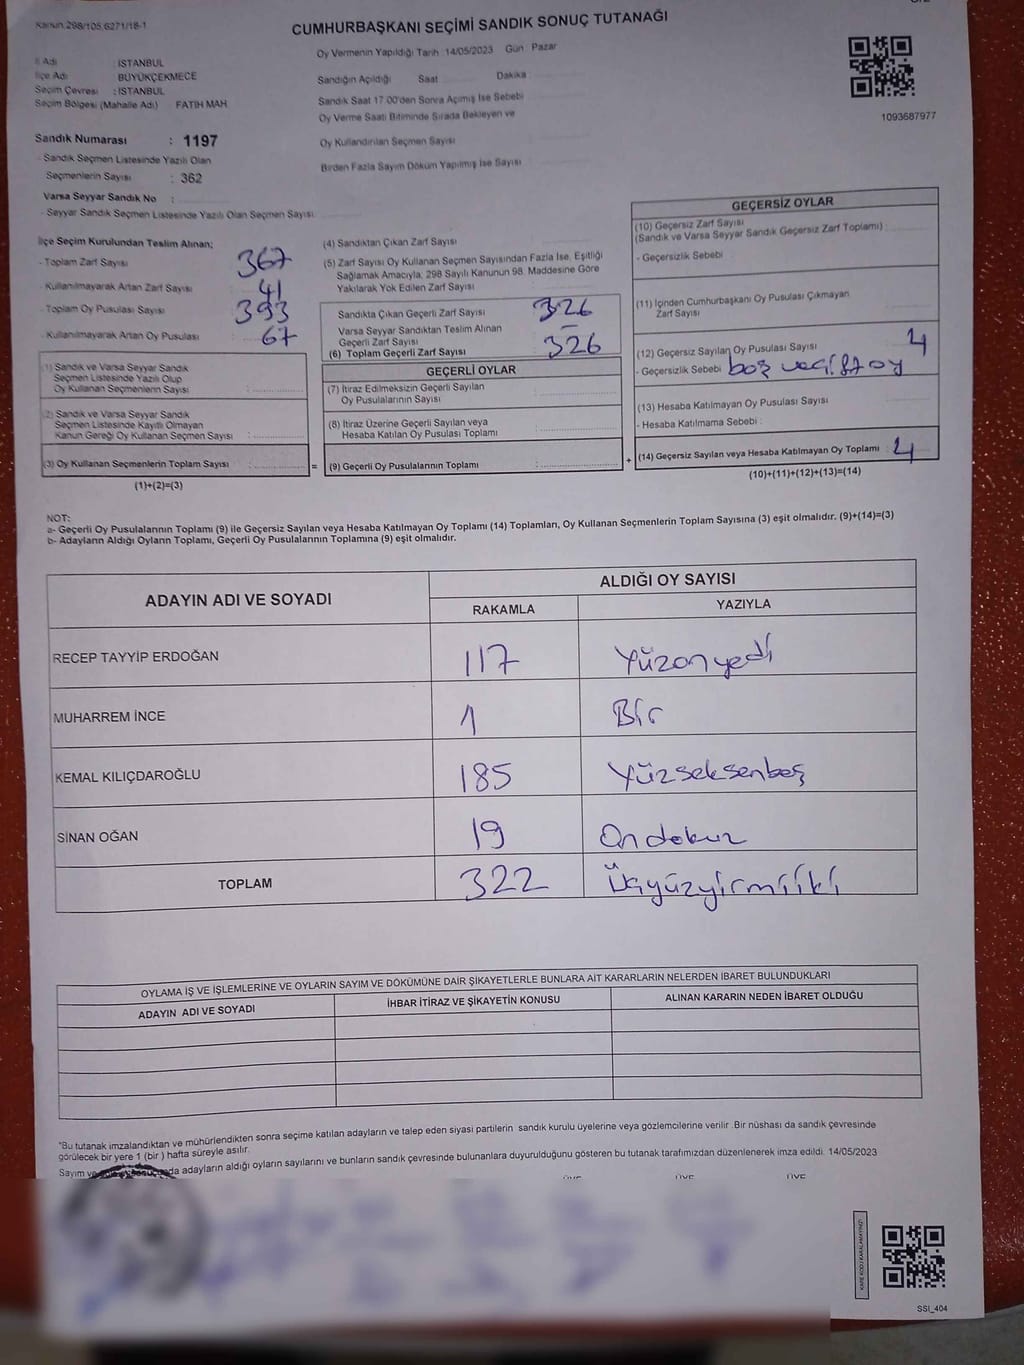 Kanun.298/105,6271/18-1
CUMHURBAŞKANI SEÇİMİ SANDIK SONUÇ TUTANAĞI
İl Adı : İSTANBUL
İlçe Adı : BÜYÜKÇEKMECE
Seçim Çevresi : İSTANBUL
Seçim Bölgesi (Mahalle Adı) FATİH MAH.
Oy Vermenin Yapıldığı Tarih 14/05/2023 Gün Pazar
Sandığın Açıldığı Saat Dakika
Sandık Saat 17.00'den Sonra Açılmış İse Sebebi
Oy Verme Saati Bitiminde Sırada Bekleyen ve
Oy Kullandırılan Seçmen Sayısı
Birden Fazla Sayım Döküm Yapılmış İse Sayısı
1093687977
Sandık Numarası : 1197
- Sandık Seçmen Listesinde Yazılı Olan
Seçmenlerin Sayısı : 362
Varsa Seyyar Sandık No :
- Seyyar Sandık Seçmen Listesinde Yazılı Olan Seçmen Sayısı:
İlçe Seçim Kurulundan Teslim Alınan;
- Toplam Zarf Sayısı 367
- Kullanılmayarak Artan Zarf Sayısı 41
- Toplam Oy Pusulası Sayısı 393
- Kullanılmayarak Artan Oy Pusulası 67
(1) Sandık ve Varsa Seyyar Sandık
Seçmen Listesinde Yazılı Olup
Oy Kullanan Seçmenlerin Sayısı :
(2) Sandık ve Varsa Seyyar Sandık
Seçmen Listesinde Kayıtlı Olmayan
Kanun Gereği Oy Kullanan Seçmen Sayısı :
(3) Oy Kullanan Seçmenlerin Toplam Sayısı :
(1)+(2)=(3)
(4) Sandıktan Çıkan Zarf Sayısı
(5) Zarf Sayısı Oy Kullanan Seçmen Sayısından Fazla İse, Eşitliği
Sağlamak Amacıyla; 298 Sayılı Kanunun 98. Maddesine Göre
Yakılarak Yok Edilen Zarf Sayısı
Sandıkta Çıkan Geçerli Zarf Sayısı 326
Varsa Seyyar Sandıktan Teslim Alınan
Geçerli Zarf Sayısı –
(6) Toplam Geçerli Zarf Sayısı 326
GEÇERLİ OYLAR
(7) İtiraz Edilmeksizin Geçerli Sayılan
Oy Pusulalarının Sayısı
(8) İtiraz Üzerine Geçerli Sayılan veya
Hesaba Katılan Oy Pusulası Toplamı
= (9) Geçerli Oy Pusulalarının Toplamı
GEÇERSİZ OYLAR
(10) Geçersiz Zarf Sayısı
(Sandık ve Varsa Seyyar Sandık Geçersiz Zarf Toplamı)
- Geçersizlik Sebebi
(11) İçinden Cumhurbaşkanı Oy Pusulası Çıkmayan
Zarf Sayısı
(12) Geçersiz Sayılan Oy Pusulası Sayısı 4
- Geçersizlik Sebebi boş ve çift oy
(13) Hesaba Katılmayan Oy Pusulası Sayısı
- Hesaba Katılmama Sebebi :
+ (14) Geçersiz Sayılan veya Hesaba Katılmayan Oy Toplamı : 4
(10)+(11)+(12)+(13)=(14)
NOT:
a- Geçerli Oy Pusulalarının Toplamı (9) ile Geçersiz Sayılan veya Hesaba Katılmayan Oy Toplamı (14) Toplamları, Oy Kullanan Seçmenlerin Toplam Sayısına (3) eşit olmalıdır. (9)+(14)=(3)
b- Adayların Aldığı Oyların Toplamı, Geçerli Oy Pusulalarının Toplamına (9) eşit olmalıdır.
ADAYIN ADI VE SOYADI
ALDIĞI OY SAYISI
RAKAMLA YAZIYLA
RECEP TAYYİP ERDOĞAN 117 Yüzonyedi
MUHARREM İNCE 1 Bir
KEMAL KILIÇDAROĞLU 185 Yüzseksenbeş
SİNAN OĞAN 19 Ondokuz
TOPLAM 322 Üçyüzyirmiiki
OYLAMA İŞ VE İŞLEMLERİNE VE OYLARIN SAYIM VE DÖKÜMÜNE DAİR ŞİKAYETLERLE BUNLARA AİT KARARLARIN NELERDEN İBARET BULUNDUKLARI
ADAYIN ADI VE SOYADI İHBAR İTİRAZ VE ŞİKAYETİN KONUSU ALINAN KARARIN NEDEN İBARET OLDUĞU
"Bu tutanak imzalandıktan ve mühürlendikten sonra seçime katılan adayların ve talep eden siyasi partilerin sandık kurulu üyelerine veya gözlemcilerine verilir .Bir nüshası da sandık çevresinde
görülecek bir yere 1 (bir ) hafta süreyle asılır.
Sayım ve adayların aldığı oyların sayılarını ve bunların sandık çevresinde bulunanlara duyurulduğunu gösteren bu tutanak tarafımızdan düzenlenerek imza edildi. 14/05/2023
ÜYE ÜYE ÜYE
KARE KODU KARALAMAYINIZ!
SSİ_404